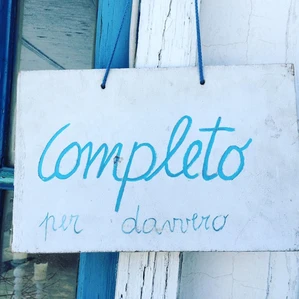 Completo
per davvero